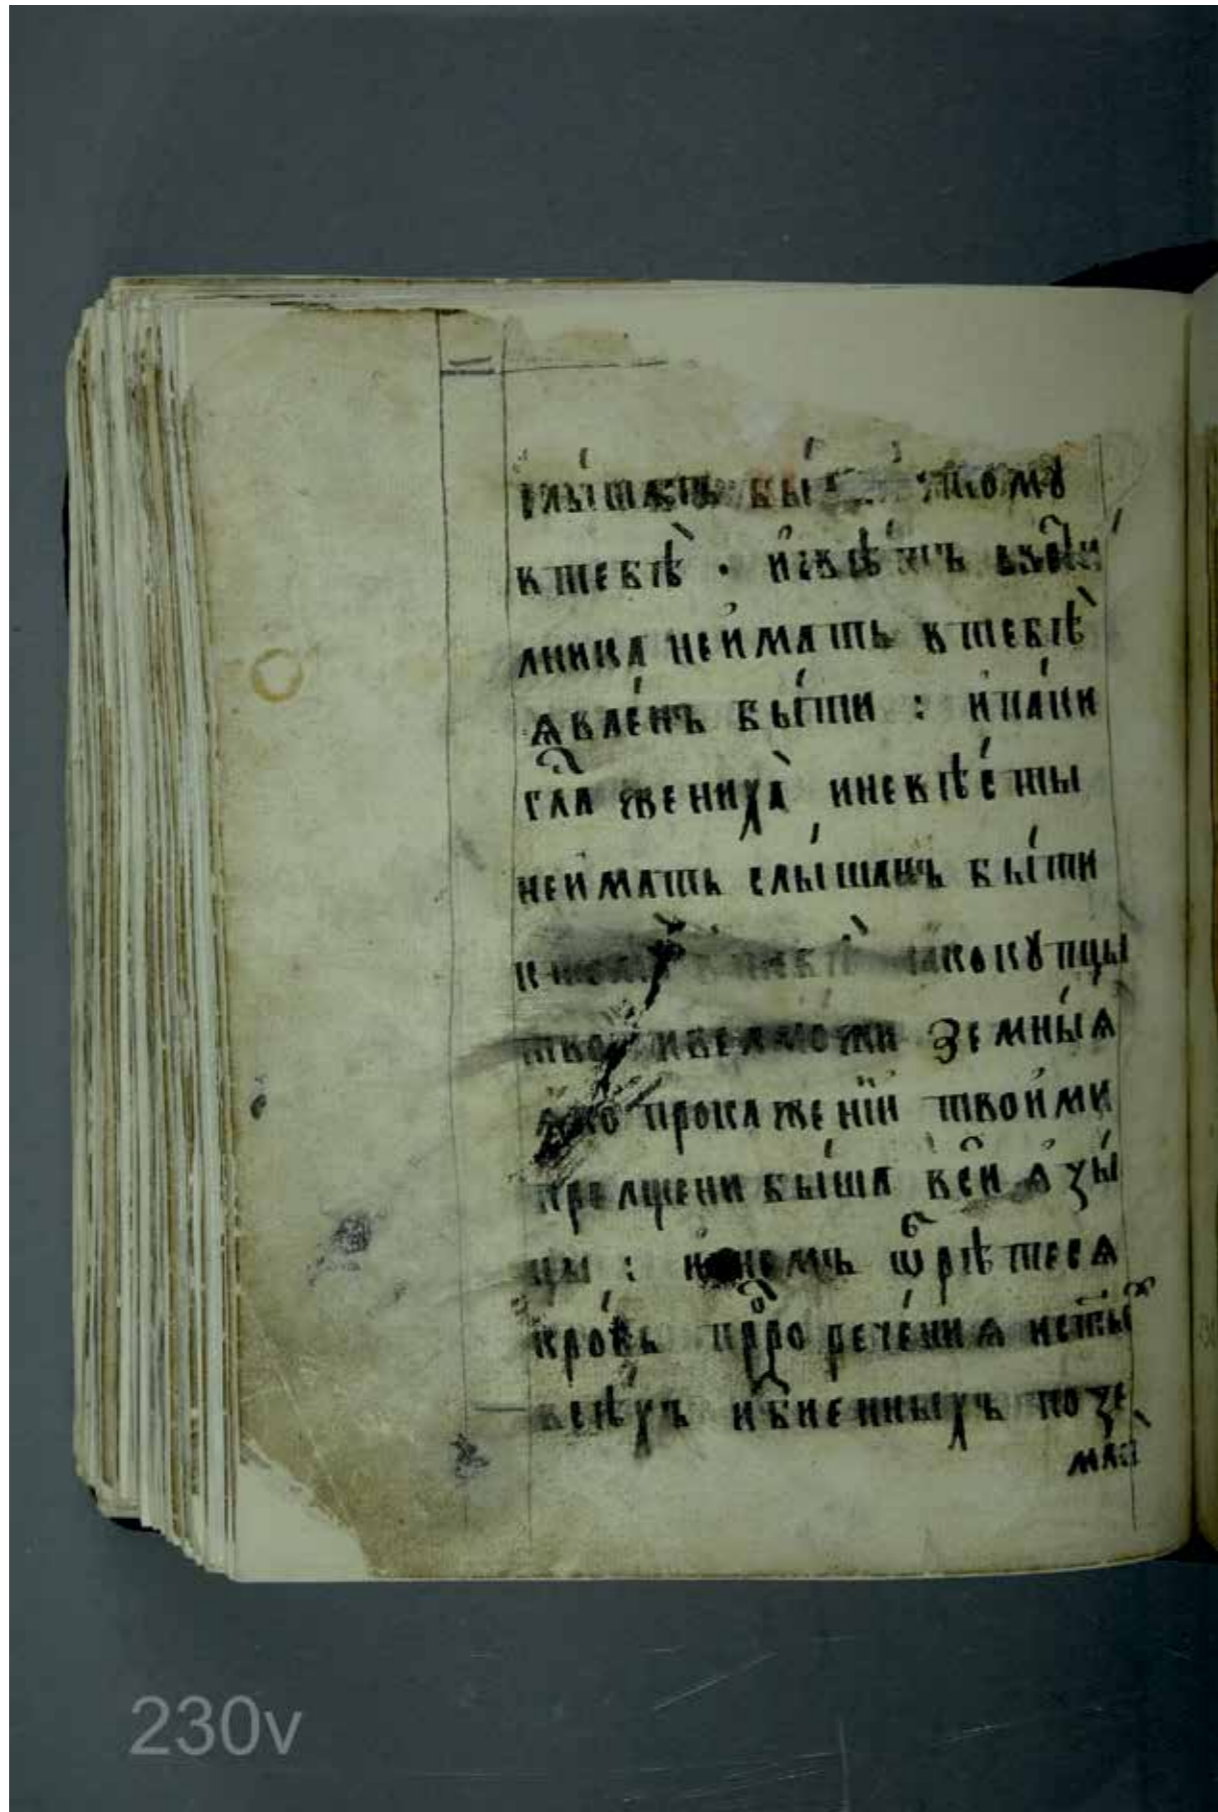 слы́шатъ бы́ ктомꙋ
ктебѣ̀ · и҆свѣ́тъ свѣти́
лника неи҆мать ктебѣ̀
ꙗвле́нъ бы́ти : и҆па́ки
гла женихà иневѣ́сты
неи҆мать слы́шанъ бы́ти
ктомꙋ̀ втебѣ̀ ꙗкокꙋпцы
твои҆ ивелмо́жи земны́ѧ
ꙗ҆ко прокаже́нїи твои́ми
прелщени бы́ша вси ѧ҆зы́
цы : и҆ ѡбрѣтесѧ
кро́вь прⷪ҇ро рече́нїѧ исты
всѣ́хъ и҆бїенныхъ позе
млѝ
230v